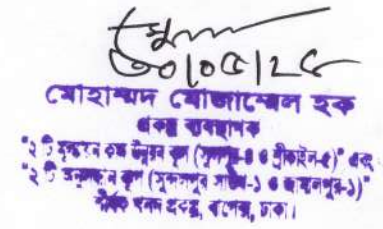 ৩০/০৫/২৫
মোহাম্মদ মোজাম্মেল হক
প্রকল্প ব্যবস্থাপক
"২ টি মূল্যায়ন কাম উন্নয়ন কূপ (সুন্দলপুর-৪ ও শ্রীকাইল-৫)" এবং
"২ টি অনুসন্ধান কূপ (সুন্দলপুর সাউথ-১ ও জামালপুর-১)"
শীর্ষক খনন প্রকল্প, বাপেক্স, ঢাকা।